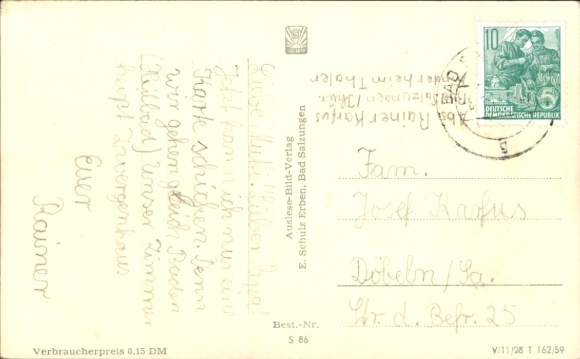 Liebe Mutti! lieber Papa!
Jetzt kann ich nur eine
Karte schicken. Denn
wir gehen gleich Baden
(Heilbad) Unser Zimmer
heißt Zwergenhaus
Euer
Rainer
Auslese-Bild-Verlag
E. Schulz Erben, Bad Salzungen
Abs. Rainer Karfus
Salzungen/Thür.
Kinderheim Thaler
BAD
10
5
DEUTSCHE
DEMOKRATISCHE REPUBLIK
Fam.
Josef Karfus
Döbeln/Sa.
Str. d. Befr. 25
Best.-Nr.
S 86
Verbraucherpreis 0,15 DM
V/11/28 T 162/59